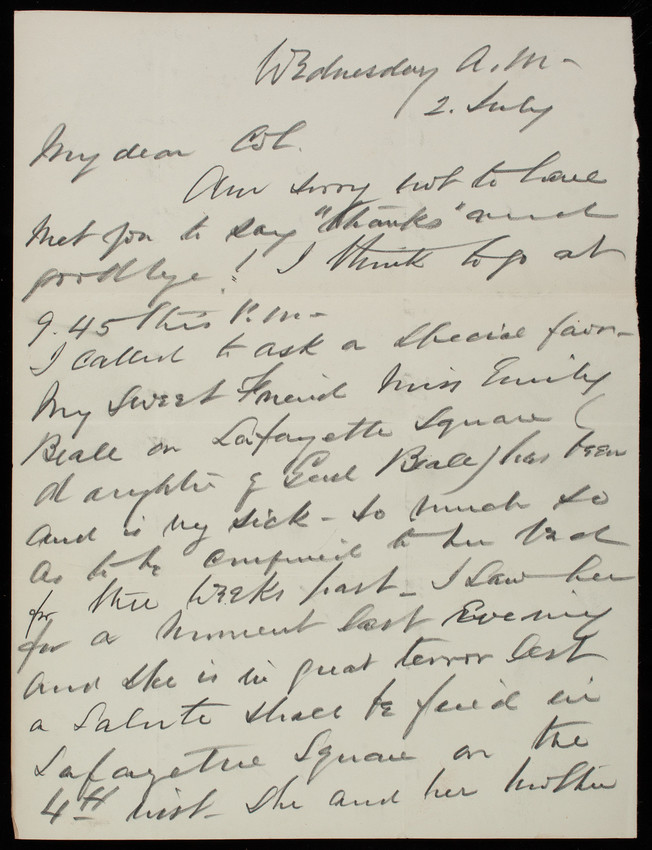 Wednesday A.M-
2. July
My dear Col.
Am sorry not to have
met you to say "thanks" and
goodbye"! I think to go at
9.45 this P.M-
I called to ask a special favor-
My sweet Friend Miss Emily
Beale on Lafayette Square (
daughter of Genl Beale) has been
and is vy sick - so much so
as to be confined to her bed
for
for three weeks past - I saw her
for a moment last Evening
and she is in great terror lest
a salute shall be fired in
Lafayette Square on the
4th inst - She and her mother